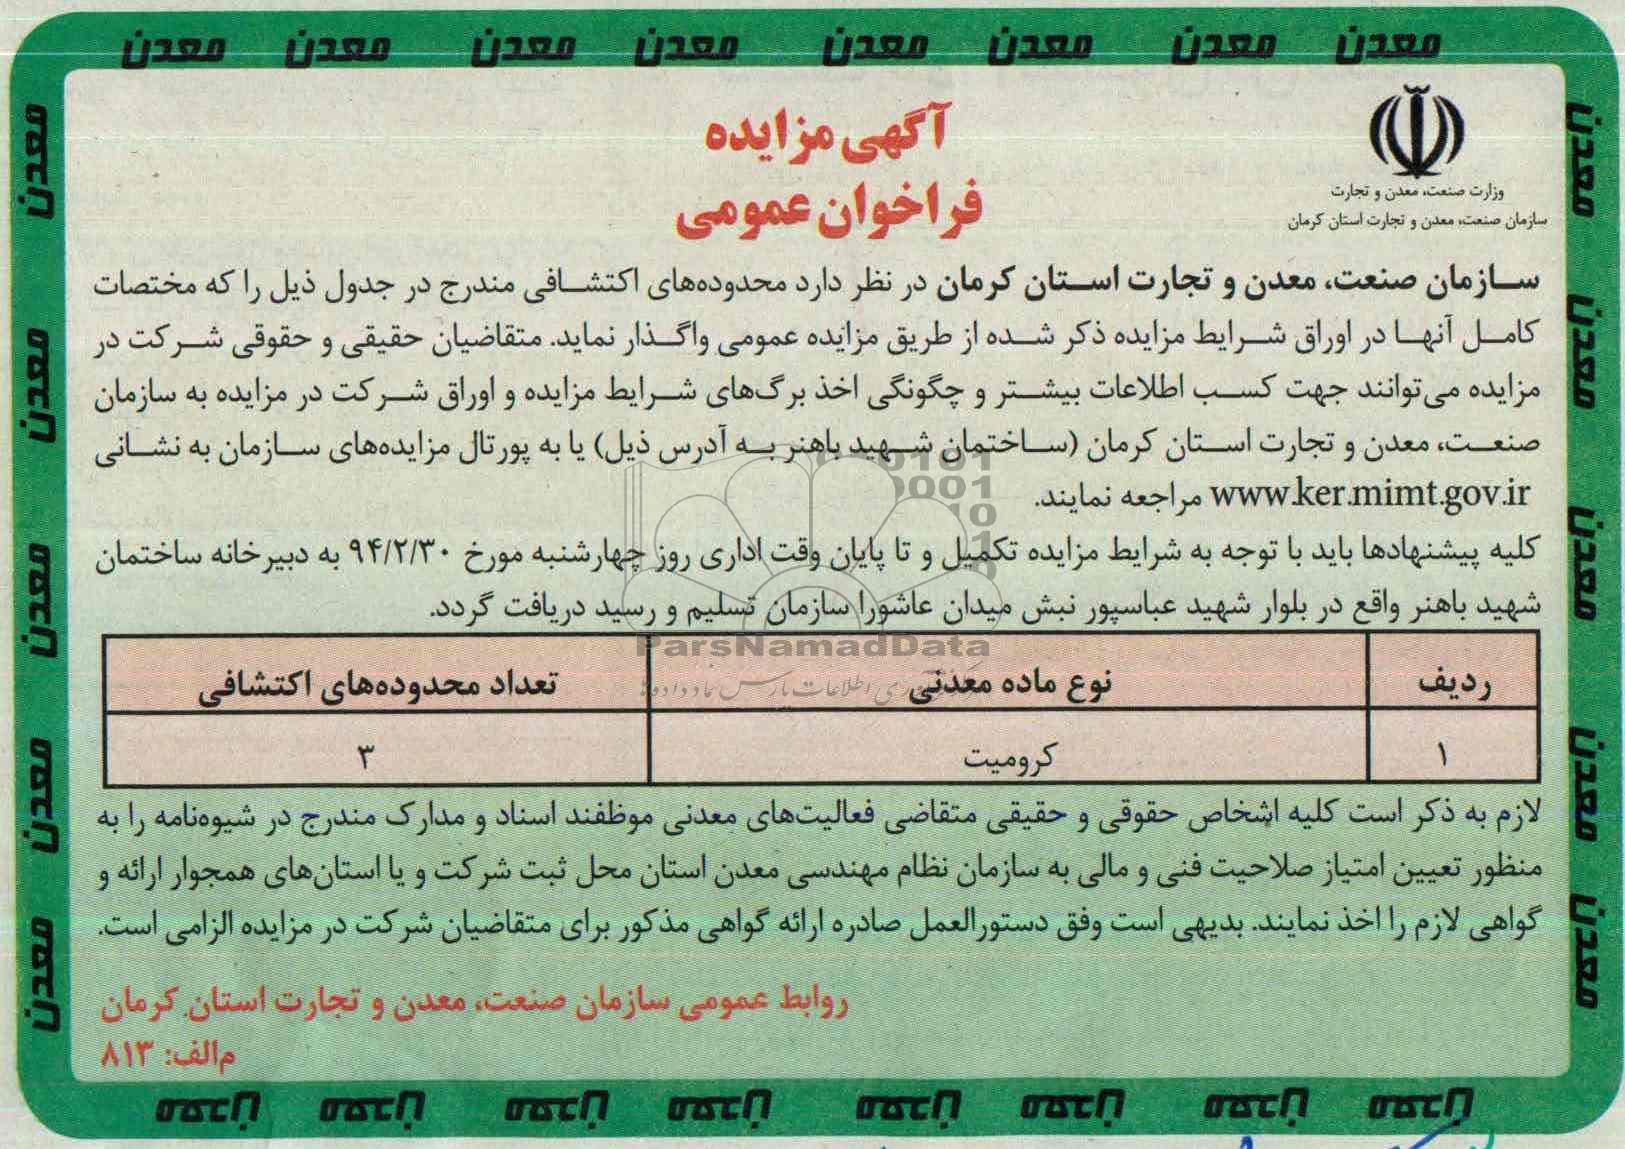 معدن معدن معدن معدن معدن معدن معدن معدن
وزارت صنعت، معدن و تجارت
سازمان صنعت، معدن و تجارت استان کرمان
آگهی مزایده
فراخوان عمومی
سازمان صنعت، معدن و تجارت استان کرمان در نظر دارد محدوده‌های اکتشافی مندرج در جدول ذیل را که مختصات
کامل آنها در اوراق شرایط مزایده ذکر شده از طریق مزایده عمومی واگذار نماید. متقاضیان حقیقی و حقوقی شرکت در
مزایده می‌توانند جهت کسب اطلاعات بیشتر و چگونگی اخذ برگ‌های شرایط مزایده و اوراق شرکت در مزایده به سازمان
صنعت، معدن و تجارت استان کرمان (ساختمان شهید باهنر به آدرس ذیل) یا به پورتال مزایده‌های سازمان به نشانی
www.ker.mimt.gov.ir مراجعه نمایند.
کلیه پیشنهادها باید با توجه به شرایط مزایده تکمیل و تا پایان وقت اداری روز چهارشنبه مورخ ۹۴/۲/۳۰ به دبیرخانه ساختمان
شهید باهنر واقع در بلوار شهید عباسپور نبش میدان عاشورا سازمان تسلیم و رسید دریافت گردد.
ParsNamadData
ردیف نوع ماده معدنی تعداد محدوده‌های اکتشافی
۱ کرومیت ۳
لازم به ذکر است کلیه اشخاص حقوقی و حقیقی متقاضی فعالیت‌های معدنی موظفند اسناد و مدارک مندرج در شیوه‌نامه را به
منظور تعیین امتیاز صلاحیت فنی و مالی به سازمان نظام مهندسی معدن استان محل ثبت شرکت و یا استان‌های همجوار ارائه و
گواهی لازم را اخذ نمایند. بدیهی است وفق دستورالعمل صادره ارائه گواهی مذکور برای متقاضیان شرکت در مزایده الزامی است.
روابط عمومی سازمان صنعت، معدن و تجارت استان کرمان
م‌الف: ۸۱۳
معدن معدن معدن معدن معدن
معدن معدن معدن معدن معدن
معدن معدن معدن معدن معدن معدن معدن معدن